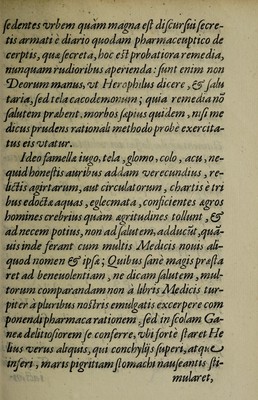 sedentes vrbem quàm magna est discursui secre-
tis armati è diario quodam pharmaceuptico de
cerptis, quæ secreta, hoc est probatiora remedia,
nunquam rudioribus aperienda: sunt enim non
Deorum manus, vt Herophilus dicere, & salu
taria, sed tela cacodemonum; quia remedia nō
salutem præbent, morbos sæpius quidem, nisi me
dicus prudens rationali methodo probè exercita-
tus eis vtatur.
Ideo famellæ iugo, tela, glomo, colo, acu, ne-
quid honestis auribus addam verecundius, re-
lictis agirtarum, aut circulatorum, chartis è tri
bus edoctæ aquas, eglecmata, conficientes agros
homines crebrius quàm agritudines tollunt, &
ad necem potius, non ad salutem, adducūt, quā-
uis inde ferant cum multis Medicis nouis ali-
quod nomen & ipsa; Quibus sanè magis præsta
ret ad beneuolentiam, ne dicam salutem, mul-
torum comparandam non à libris Medicis tur-
piter à pluribus nostris emulgatis excerpere com
ponendi pharmaca rationem, sed in scolam Ga-
neæ delitiosiorem se conferre, vbi fortè staret He
lius verus aliquis, qui conchylijs superi, atque
inferi, maris pigritiam stomachi nauseantis sti-
mularet,